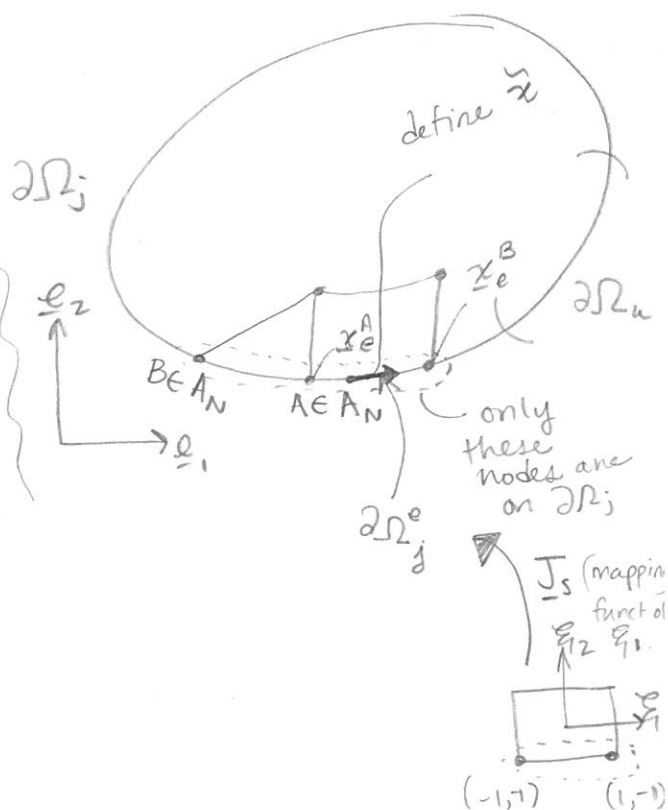 define x̃
∂Ω_j
e_2
x_e^B
∂Ω_u
x_e^A
B∈A_N
A∈A_N
e_1
only
these
nodes are
on ∂Ω_j
∂Ω_j^e
J_s (mappin
funct
ξ_2 ξ_1
ξ
(-1,-1)
(1,-1)